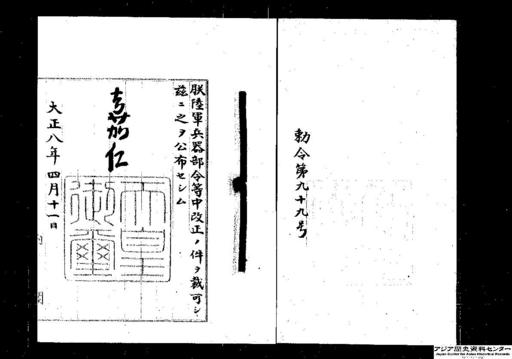 勅令第九十九号
朕陸軍兵器部令等中改正ノ件ヲ裁可シ
茲ニ之ヲ公布セシム
嘉仁
天皇
御璽
大正八年四月十一日
内
閣
アジア歴史資料センター
Japan Center for Asian Historical Records